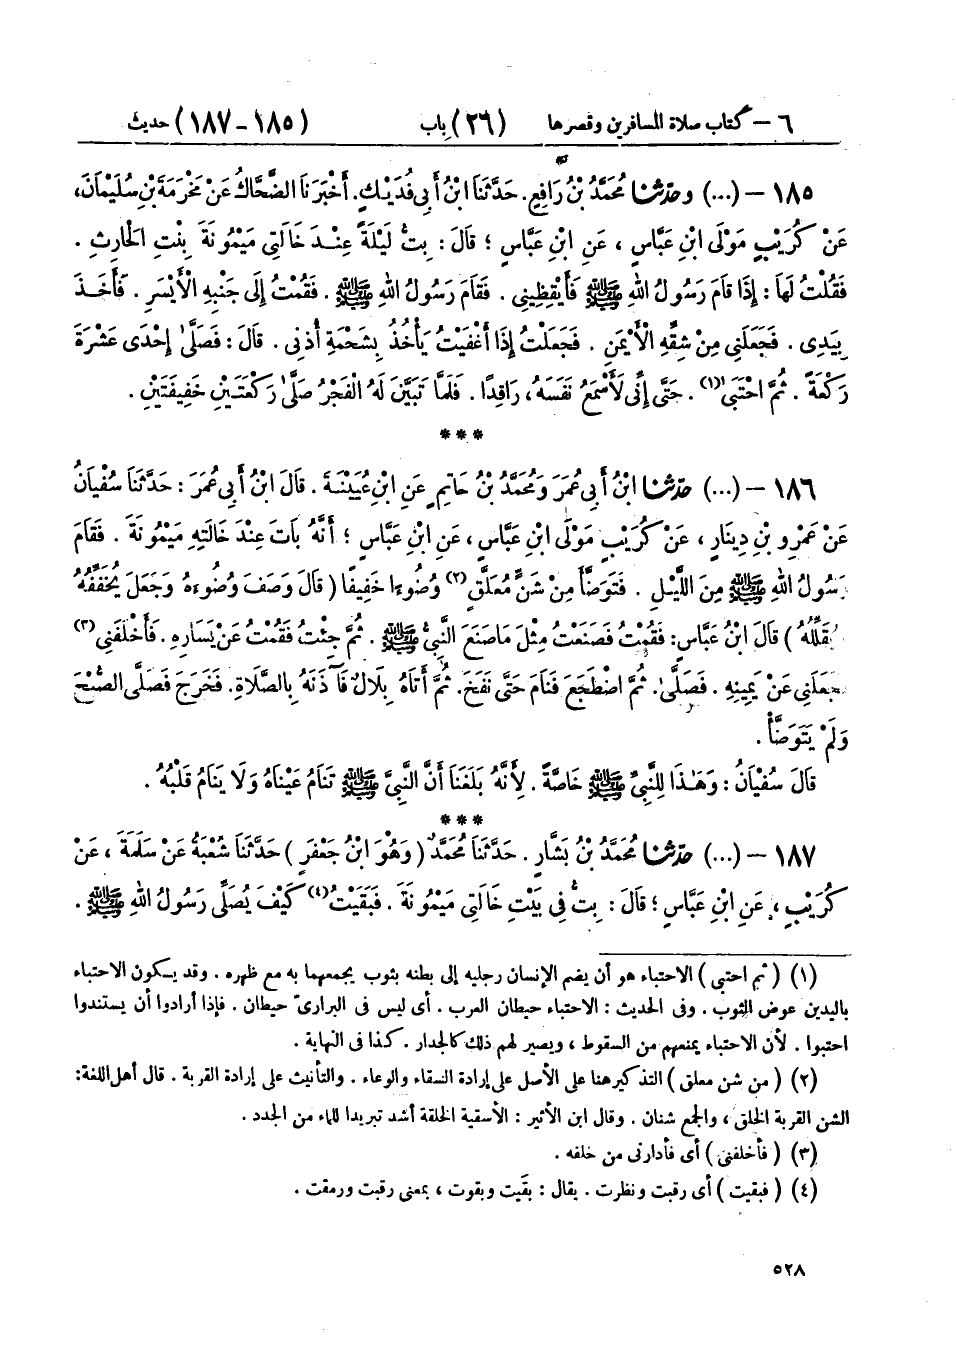 ٦ – كتاب صلاة المسافرين وقصرها (٢٦) باب (١٨٥-١٨٧) حديث
١٨٥ – (...) وحَدَّثَنَا مُحَمَّدُ بْنُ رَافِعٍ. حَدَّثَنَا ابْنُ أَبِي فُدَيْكٍ. أَخْبَرَنَا الضَّحَّاكُ عَنْ مَخْرَمَةَ بْنِ سُلَيْمَانَ،
عَنْ كُرَيْبٍ مَوْلَى ابْنِ عَبَّاسٍ، عَنِ ابْنِ عَبَّاسٍ؛ قَالَ: بِتُّ لَيْلَةً عِنْدَ خَالَتِي مَيْمُونَةَ بِنْتِ الْحَارِثِ.
فَقُلْتُ لَهَا: إِذَا قَامَ رَسُولُ اللهِ ﷺ فَأَيْقِظِينِي. فَقَامَ رَسُولُ اللهِ ﷺ. فَقُمْتُ إِلَى جَنْبِهِ الْأَيْسَرِ. فَأَخَذَ
بِيَدِي. فَجَعَلَنِي مِنْ شِقِّهِ الْأَيْمَنِ. فَجَعَلْتُ إِذَا أَغْفَيْتُ يَأْخُذُ بِشَحْمَةِ أُذُنِي. قَالَ: فَصَلَّى إِحْدَى عَشْرَةَ
رَكْعَةً. ثُمَّ احْتَبَى(١). حَتَّى إِنِّي لَأَسْمَعُ نَفَسَهُ، رَاقِدًا. فَلَمَّا تَبَيَّنَ لَهُ الْفَجْرُ صَلَّى رَكْعَتَيْنِ خَفِيفَتَيْنِ.
***
١٨٦ – (...) حَدَّثَنَا ابْنُ أَبِي عُمَرَ وَمُحَمَّدُ بْنُ حَاتِمٍ عَنِ ابْنِ عُيَيْنَةَ. قَالَ ابْنُ أَبِي عُمَرَ: حَدَّثَنَا سُفْيَانُ
عَنْ عَمْرِو بْنِ دِينَارٍ، عَنْ كُرَيْبٍ مَوْلَى ابْنِ عَبَّاسٍ، عَنِ ابْنِ عَبَّاسٍ؛ أَنَّهُ بَاتَ عِنْدَ خَالَتِهِ مَيْمُونَةَ. فَقَامَ
رَسُولُ اللهِ ﷺ مِنَ اللَّيْلِ. فَتَوَضَّأَ مِنْ شَنٍّ مُعَلَّقٍ(٢) وُضُوءًا خَفِيفًا (قَالَ وَصَفَ وُضُوءَهُ وَجَعَلَ يُخَفِّفُهُ
وَيُقَلِّلُهُ) قَالَ ابْنُ عَبَّاسٍ: فَقُمْتُ فَصَنَعْتُ مِثْلَ مَا صَنَعَ النَّبِيُّ ﷺ. ثُمَّ جِئْتُ فَقُمْتُ عَنْ يَسَارِهِ. فَأَخْلَفَنِي(٣)
فَجَعَلَنِي عَنْ يَمِينِهِ. فَصَلَّى. ثُمَّ اضْطَجَعَ فَنَامَ حَتَّى نَفَخَ. ثُمَّ أَتَاهُ بِلَالٌ فَآذَنَهُ بِالصَّلَاةِ. فَخَرَجَ فَصَلَّى الصُّبْحَ
وَلَمْ يَتَوَضَّأْ.
قَالَ سُفْيَانُ: وَهَذَا لِلنَّبِيِّ ﷺ خَاصَّةً. لِأَنَّهُ بَلَغَنَا أَنَّ النَّبِيَّ ﷺ تَنَامُ عَيْنَاهُ وَلَا يَنَامُ قَلْبُهُ.
***
١٨٧ – (...) حَدَّثَنَا مُحَمَّدُ بْنُ بَشَّارٍ. حَدَّثَنَا مُحَمَّدٌ (وَهُوَ ابْنُ جَعْفَرٍ) حَدَّثَنَا شُعْبَةُ عَنْ سَلَمَةَ، عَنْ
كُرَيْبٍ، عَنِ ابْنِ عَبَّاسٍ؛ قَالَ: بِتُّ فِي بَيْتِ خَالَتِي مَيْمُونَةَ. فَبَقَيْتُ(٤) كَيْفَ يُصَلِّي رَسُولُ اللهِ ﷺ.
(١) (ثم احتبى) الاحتباء هو أن يضم الإنسان رجليه إلى بطنه بثوب يجمعهما به مع ظهره. وقد يكون الاحتباء
باليدين عوض الثوب. وفى الحديث: الاحتباء حيطان العرب. أى ليس فى البرارىّ حيطان. فإذا أرادوا أن يستندوا
احتبوا. لأن الاحتباء يمنعهم من السقوط، ويصير لهم ذلك كالجدار. كذا فى النهاية.
(٢) (من شن معلق) التذكير هنا على الأصل على إرادة السقاء والوعاء. والتأنيث على إرادة القربة. قال أهل اللغة:
الشن القربة الخلق، والجمع شنان. وقال ابن الأثير: الأسقية الخلقة أشد تبريدا للماء من الجدد.
(٣) (فأخلفنى) أى فأدارنى من خلفه.
(٤) (فبقيت) أى رقبت ونظرت. يقال: بقَيت وبقوت، بمعنى رقبت ورمقت.
٥٢٨